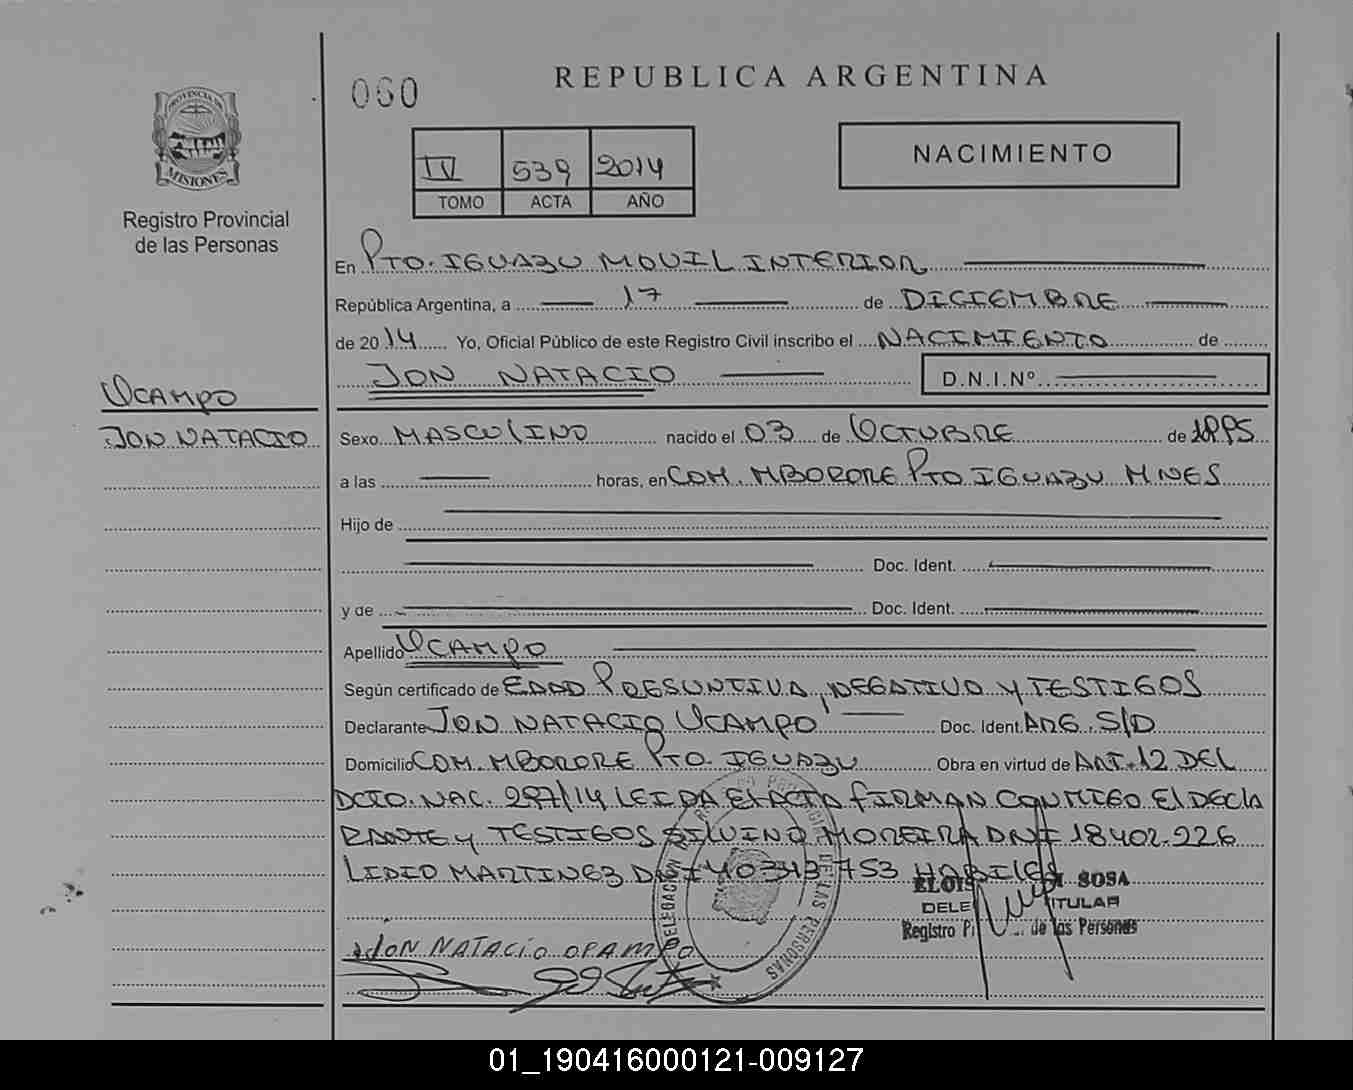 060
REPUBLICA ARGENTINA
PROVINCIA DE
MISIONES
Registro Provincial
de las Personas
IV 539 2014
TOMO ACTA AÑO
NACIMIENTO
En PTO. IGUAZU MOVIL INTERIOR
República Argentina, a 17 de DICIEMBRE
de 2014 Yo, Oficial Público de este Registro Civil inscribo el NACIMIENTO de
JON NATACIO D.N.I.Nº
OCAMPO
JON NATACIO
Sexo MASCULINO nacido el 03 de OCTUBRE de 1995
a las horas, en COM. MBORORE PTO IGUAZU MNES
Hijo de
Doc. Ident.
y de Doc. Ident.
Apellido OCAMPO
Según certificado de EDAD PRESUNTIVA, NEGATIVO Y TESTIGOS
Declarante JON NATACIO OCAMPO Doc. Ident. ARG. S/D
Domicilio COM. MBORORE PTO. IGUAZU Obra en virtud de ART. 12 DEL
DCTO. NAC. 297/14 LEIDA EL ACTA FIRMAN CONMIGO El DECLA
RANTE y TESTIGOS SILVINO MOREIRA DNI 18402.226
LIDIO MARTINEZ DNI 40343753 HABILES
SOSA
TITULAR
Registro de las Personas
DELEGACION
DE LAS PERSONAS
JON NATACIO OPAMPO
01_190416000121-009127